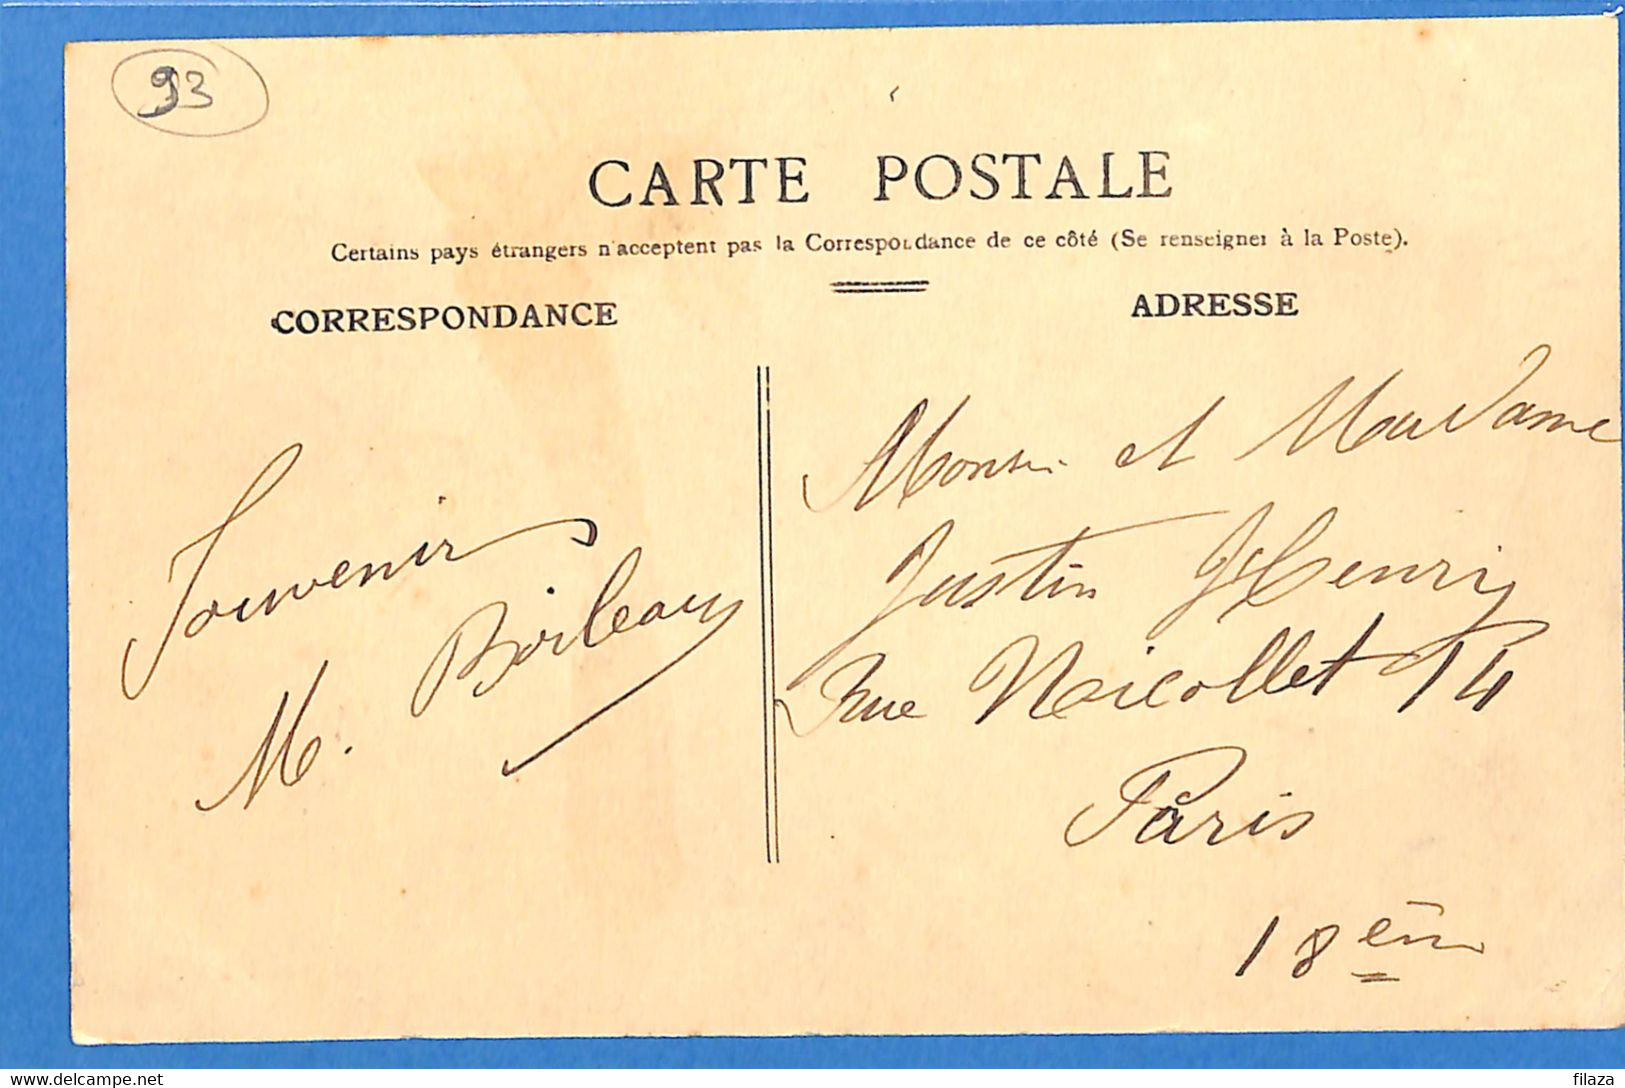 93
CARTE POSTALE
Certains pays étrangers n'acceptent pas la Correspondance de ce côté (Se renseigner à la Poste).
CORRESPONDANCE
ADRESSE
Souvenir
M. Boileau
et Madame
Justin Henry
Rue Nicollet 14
Paris
18èm
delcampe.net
filaza